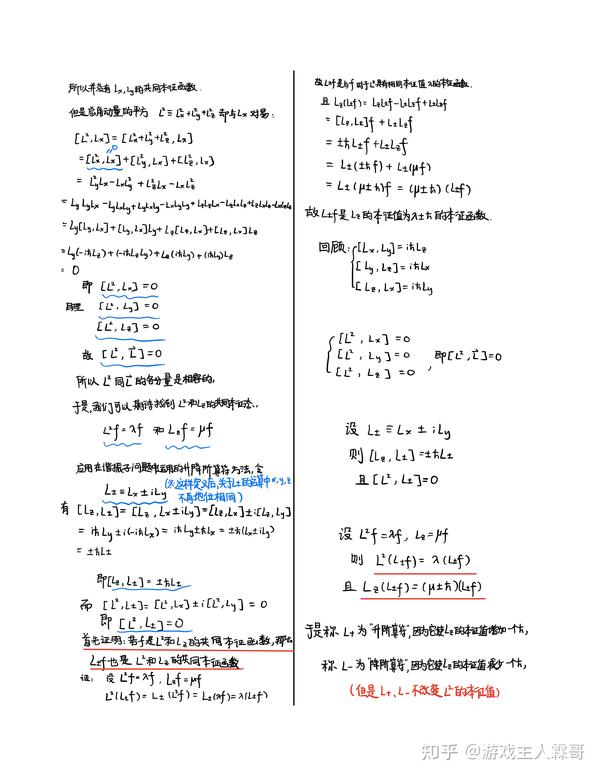 所以并没有 Lx, Ly 的共同本征函数.
但是总角动量的平方 L² ≡ Lx²+Ly²+Lz² 却与 Lx 对易:
[L², Lx] = [Lx²+Ly²+Lz², Lx]
= [Lx², Lx] + [Ly², Lx] + [Lz², Lx]
0
= Ly²Lx - LxLy² + Lz²Lx - LxLz²
= LyLyLx - LyLxLy + LyLxLy - LxLyLy + LzLzLx - LzLxLz + LzLxLz - LxLzLz
= Ly[Ly, Lx] + [Ly, Lx]Ly + Lz[Lz, Lx] + [Lz, Lx]Lz
= Ly(-iħLz) + (-iħLzLy) + Lz(iħLy) + (iħLy)Lz
= 0
即 [L², Lx] = 0
同理 [L², Ly] = 0
[L², Lz] = 0
故 [L², L⃗] = 0
所以 L² 同 L⃗ 的各分量是相容的,
于是,我们可以期待找到 L² 和 Lz 的共同本征态.
L²f = λf 和 Lzf = μf
应用在谐振子问题中的升降阶算符方法,令
L± ≡ Lx ± iLy
(※这样定义后,关于L±的运算中x,y,z
不再地位相同)
有 [Lz, L±] = [Lz, Lx ± iLy] = [Lz, Lx] ± i[Lz, Ly]
= iħLy ± i(-iħLx) = iħLy ± ħLx = ±ħ(Lx ± iLy)
= ±ħL±
即[Lz, L±] = ±ħL±
而 [L², L±] = [L², Lx] ± i[L², Ly] = 0
即 [L², L±] = 0
首先证明:若f是L²和Lz的共同本征函数,那么
L±f 也是 L² 和 Lz 的共同本征函数
证: 设 L²f = λf, Lzf = μf
L²(L±f) = L±(L²f) = L±(λf) = λ(L±f)
故 L±f 是与 f 对于 L² 具有相同本征值 λ 的本征函数.
且 Lz(L±f) = LzL±f - L±Lzf + L±Lzf
= [Lz, L±]f + L±Lzf
= ±ħL±f + L±Lzf
= L±(±ħf) + L±(μf)
= L±(μ±ħ)f = (μ±ħ)(L±f)
故 L±f 是 Lz 的本征值为 λ±ħ 的本征函数.
回顾: [Lx, Ly] = iħLz
[Ly, Lz] = iħLx
[Lz, Lx] = iħLy
[L², Lx] = 0
[L², Ly] = 0 , 即[L², L⃗] = 0
[L², Lz] = 0
设 L± ≡ Lx ± iLy
则 [Lz, L±] = ±ħL±
且 [L², L±] = 0
设 L²f = λf, Lz = μf
则 L²(L±f) = λ(L±f)
且 Lz(L±f) = (μ±ħ)(L±f)
于是称 L+ 为 "升阶算符",因为它使 Lz 的本征值增加一个ħ,
称 L- 为 "降阶算符",因为它使 Lz 的本征值减少一个ħ,
(但是 L+, L- 不改变 L² 的本征值)
知乎 @游戏主人霖哥